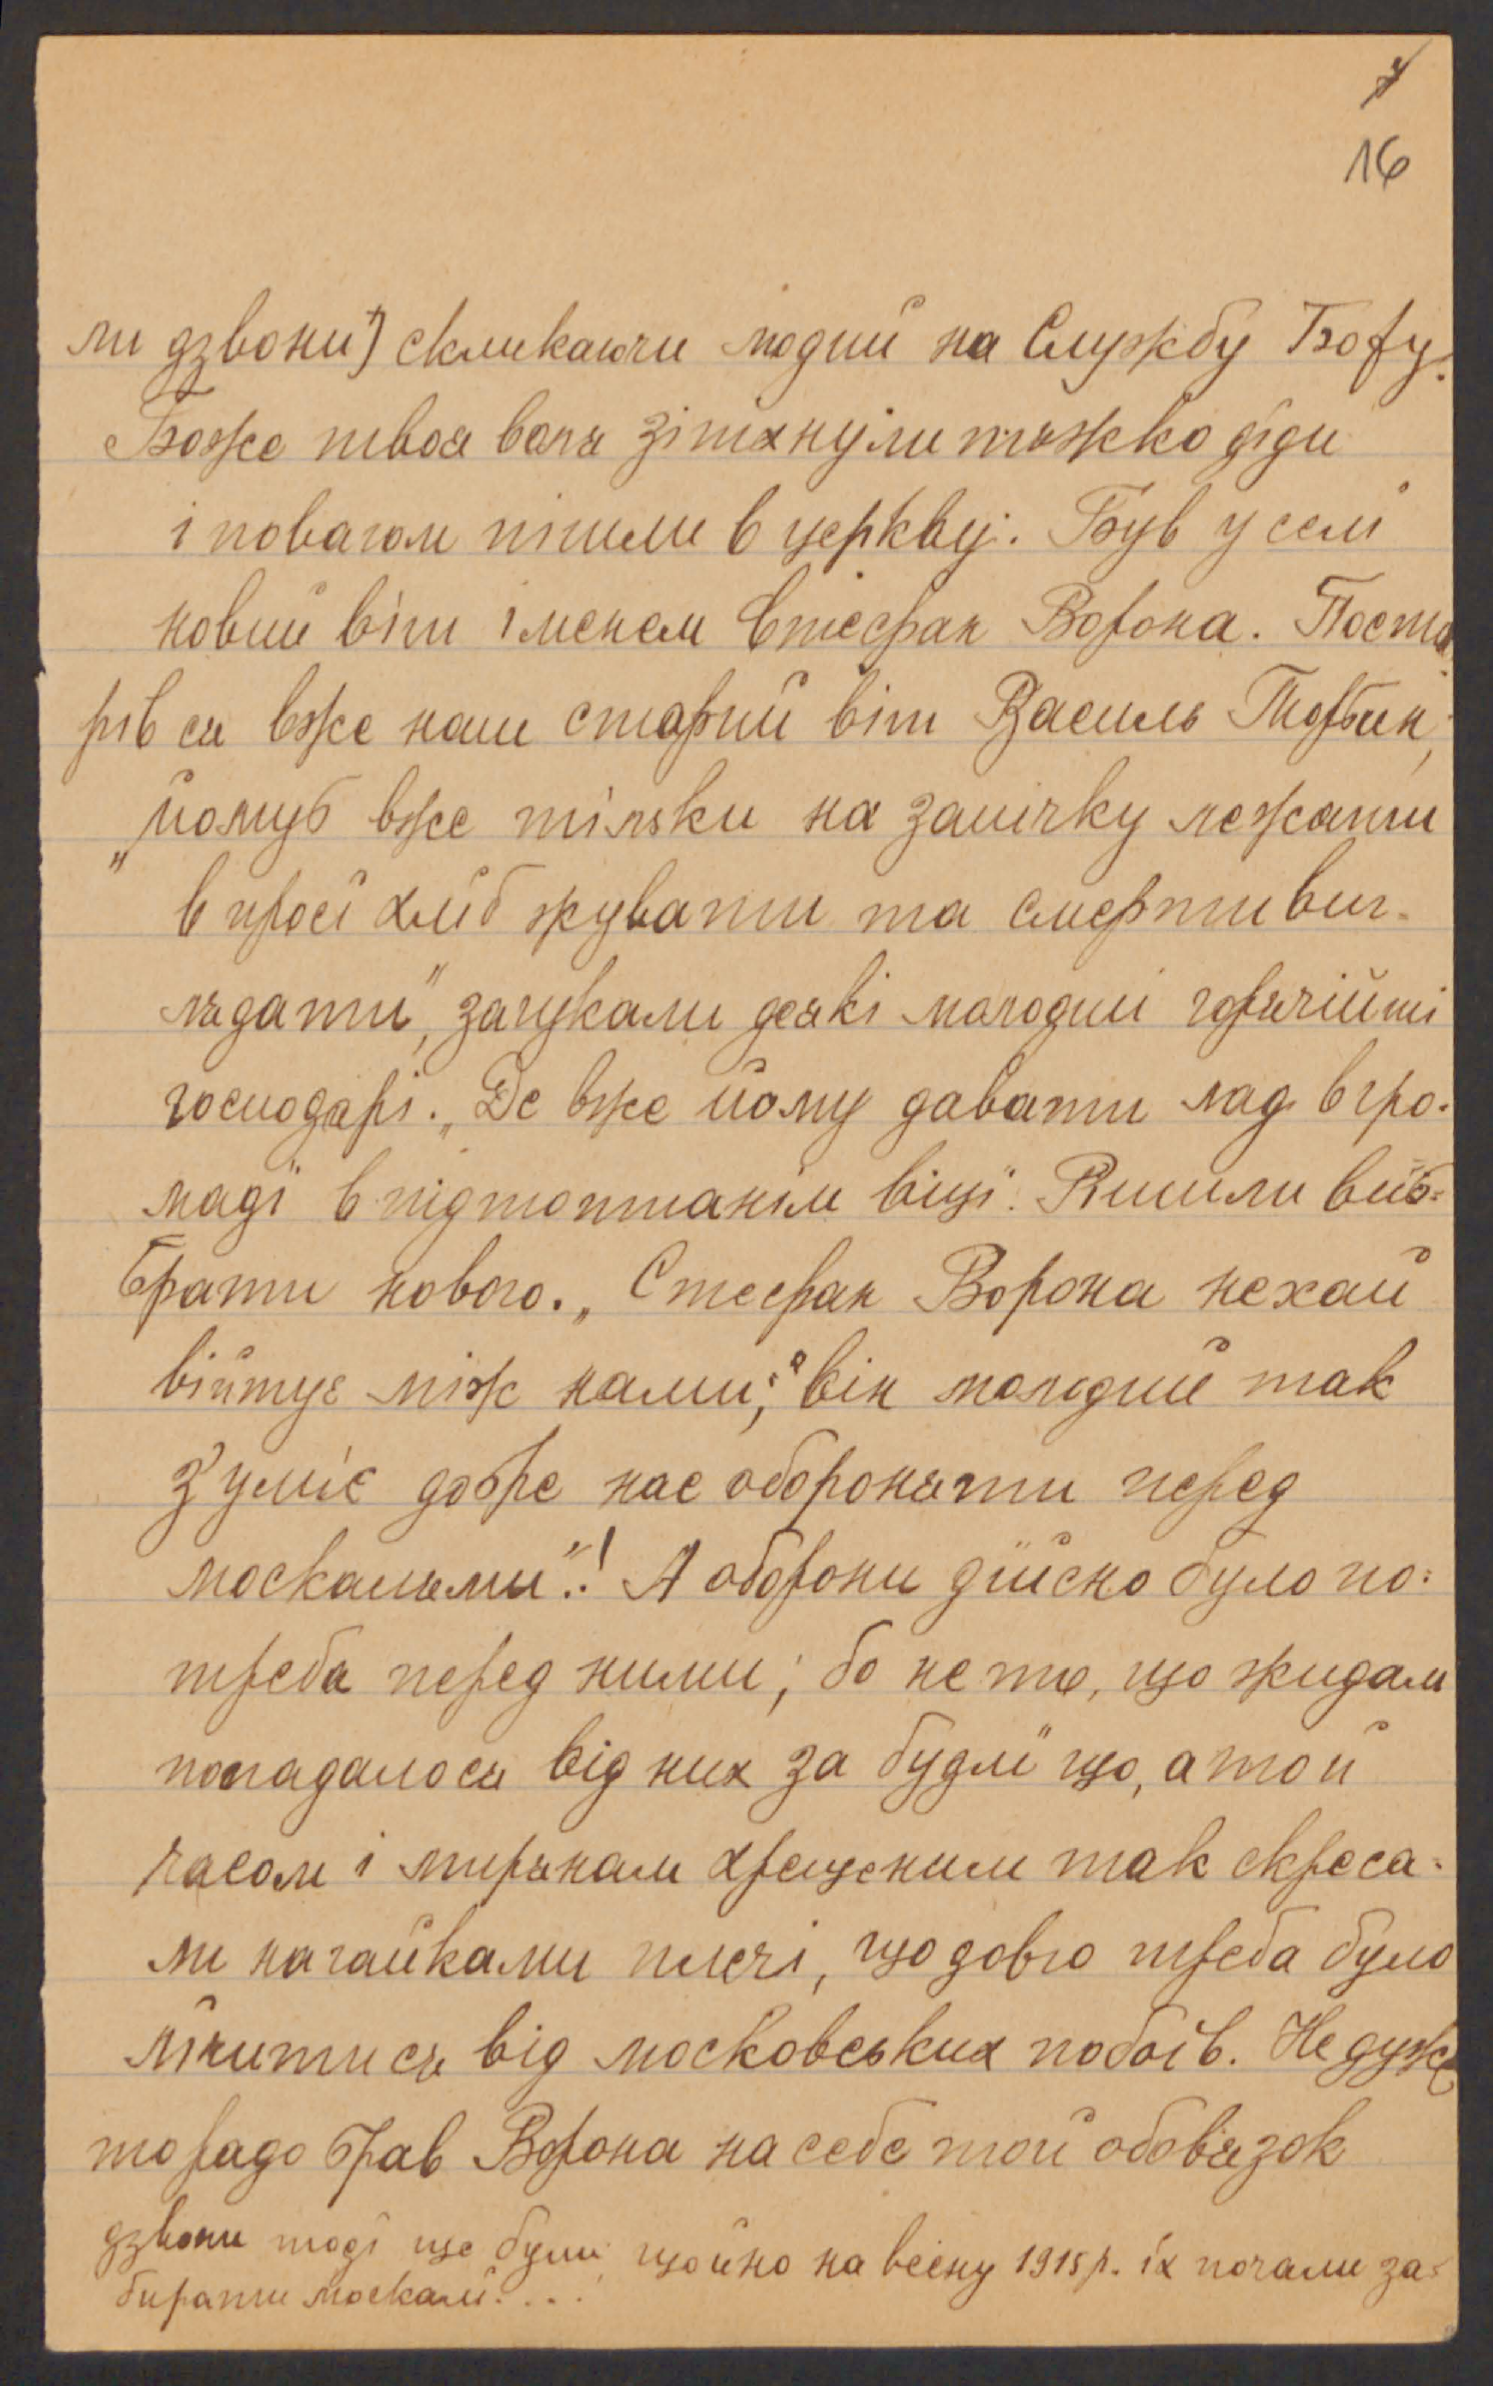 7
16
ли дзвони*) скликаючи людий на Службу Божу.
Боже твоя воля зітхнули тяжко діди
і поволи пішли в церкву. Був у селі
новий віт іменем Стефан Ворона. Поста
рів ся вже наш старий віт Василь Торбин,
„йомуб вже тільки на запічку лежати
в просі хліб жувати та смерти виг-
лядати", загукали деякі молодші горячійші
господарі. „Де вже йому давати лад в гро-
маді в підтоптанім віці". Рішили виб-
брати нового. „Стефан Ворона нехай
війтує між нами; він молодий так
з'уміє добре нас обороняти перед
москалями"! А оборони дійсно було по-
треба перед ними; бо не то, що жидам
попадалося від них за будлі що, а той
часом і мирянам хрещеним так скреса-
ли нагайками плечі, що довго треба було
лічити ся від московських побоїв. Не дуже
то радо брав Ворона на себе той обовязок
дзвони тоді ще були щойно на весну 1915 р. їх почали за-
бирати москалі....